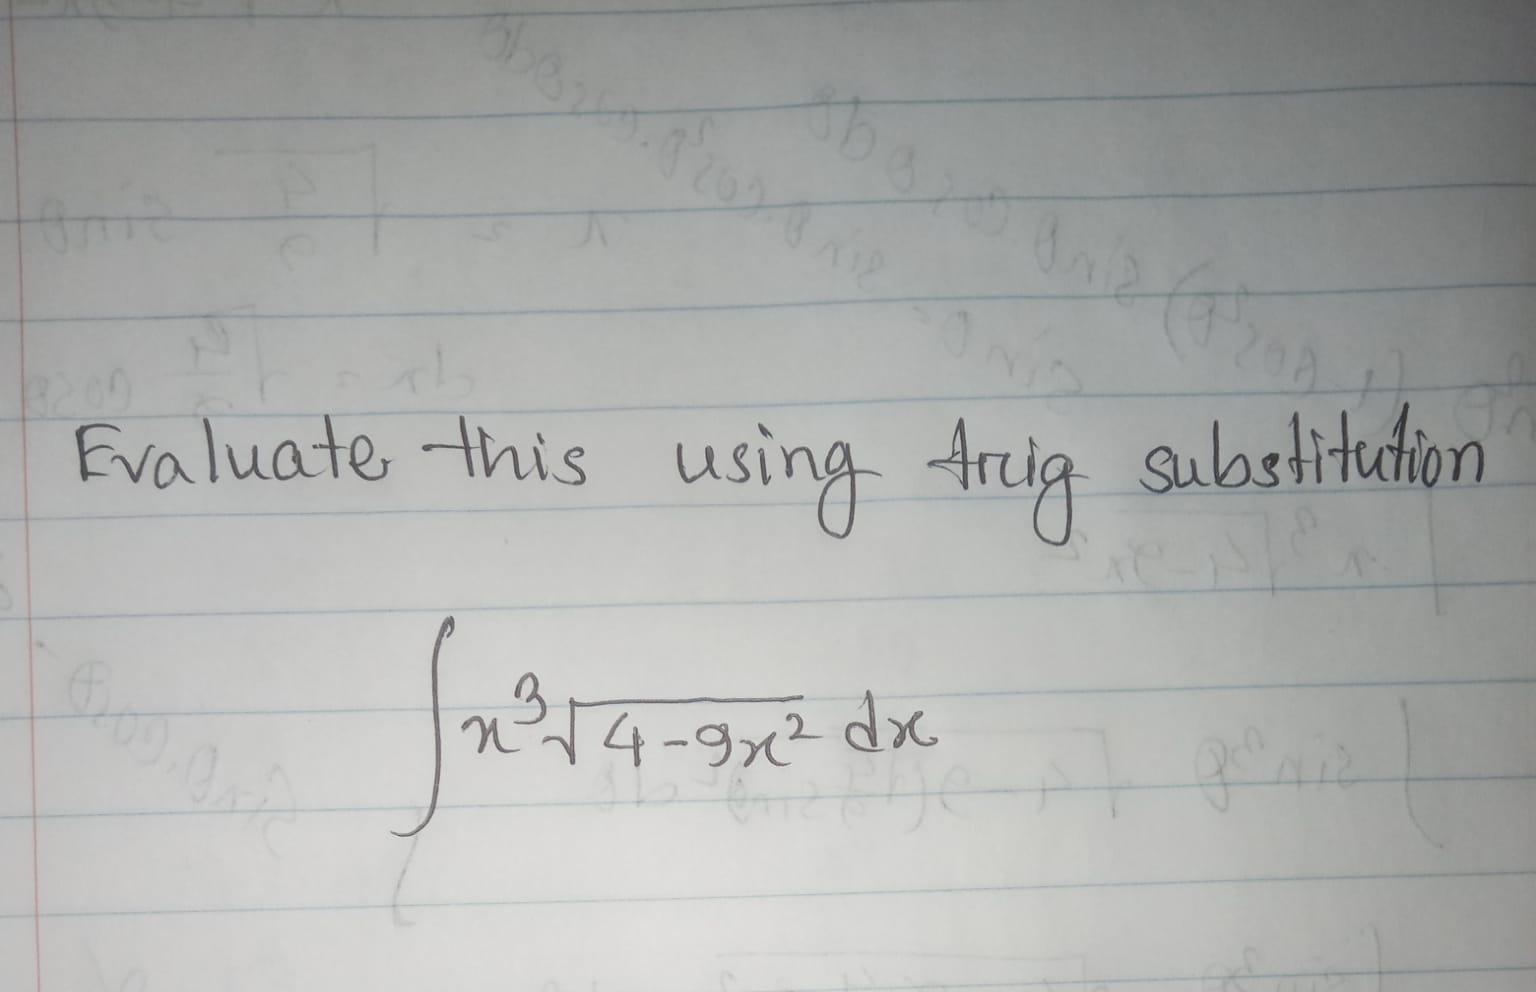 Evaluate this using trig substitution
∫x³√4-9x² dx